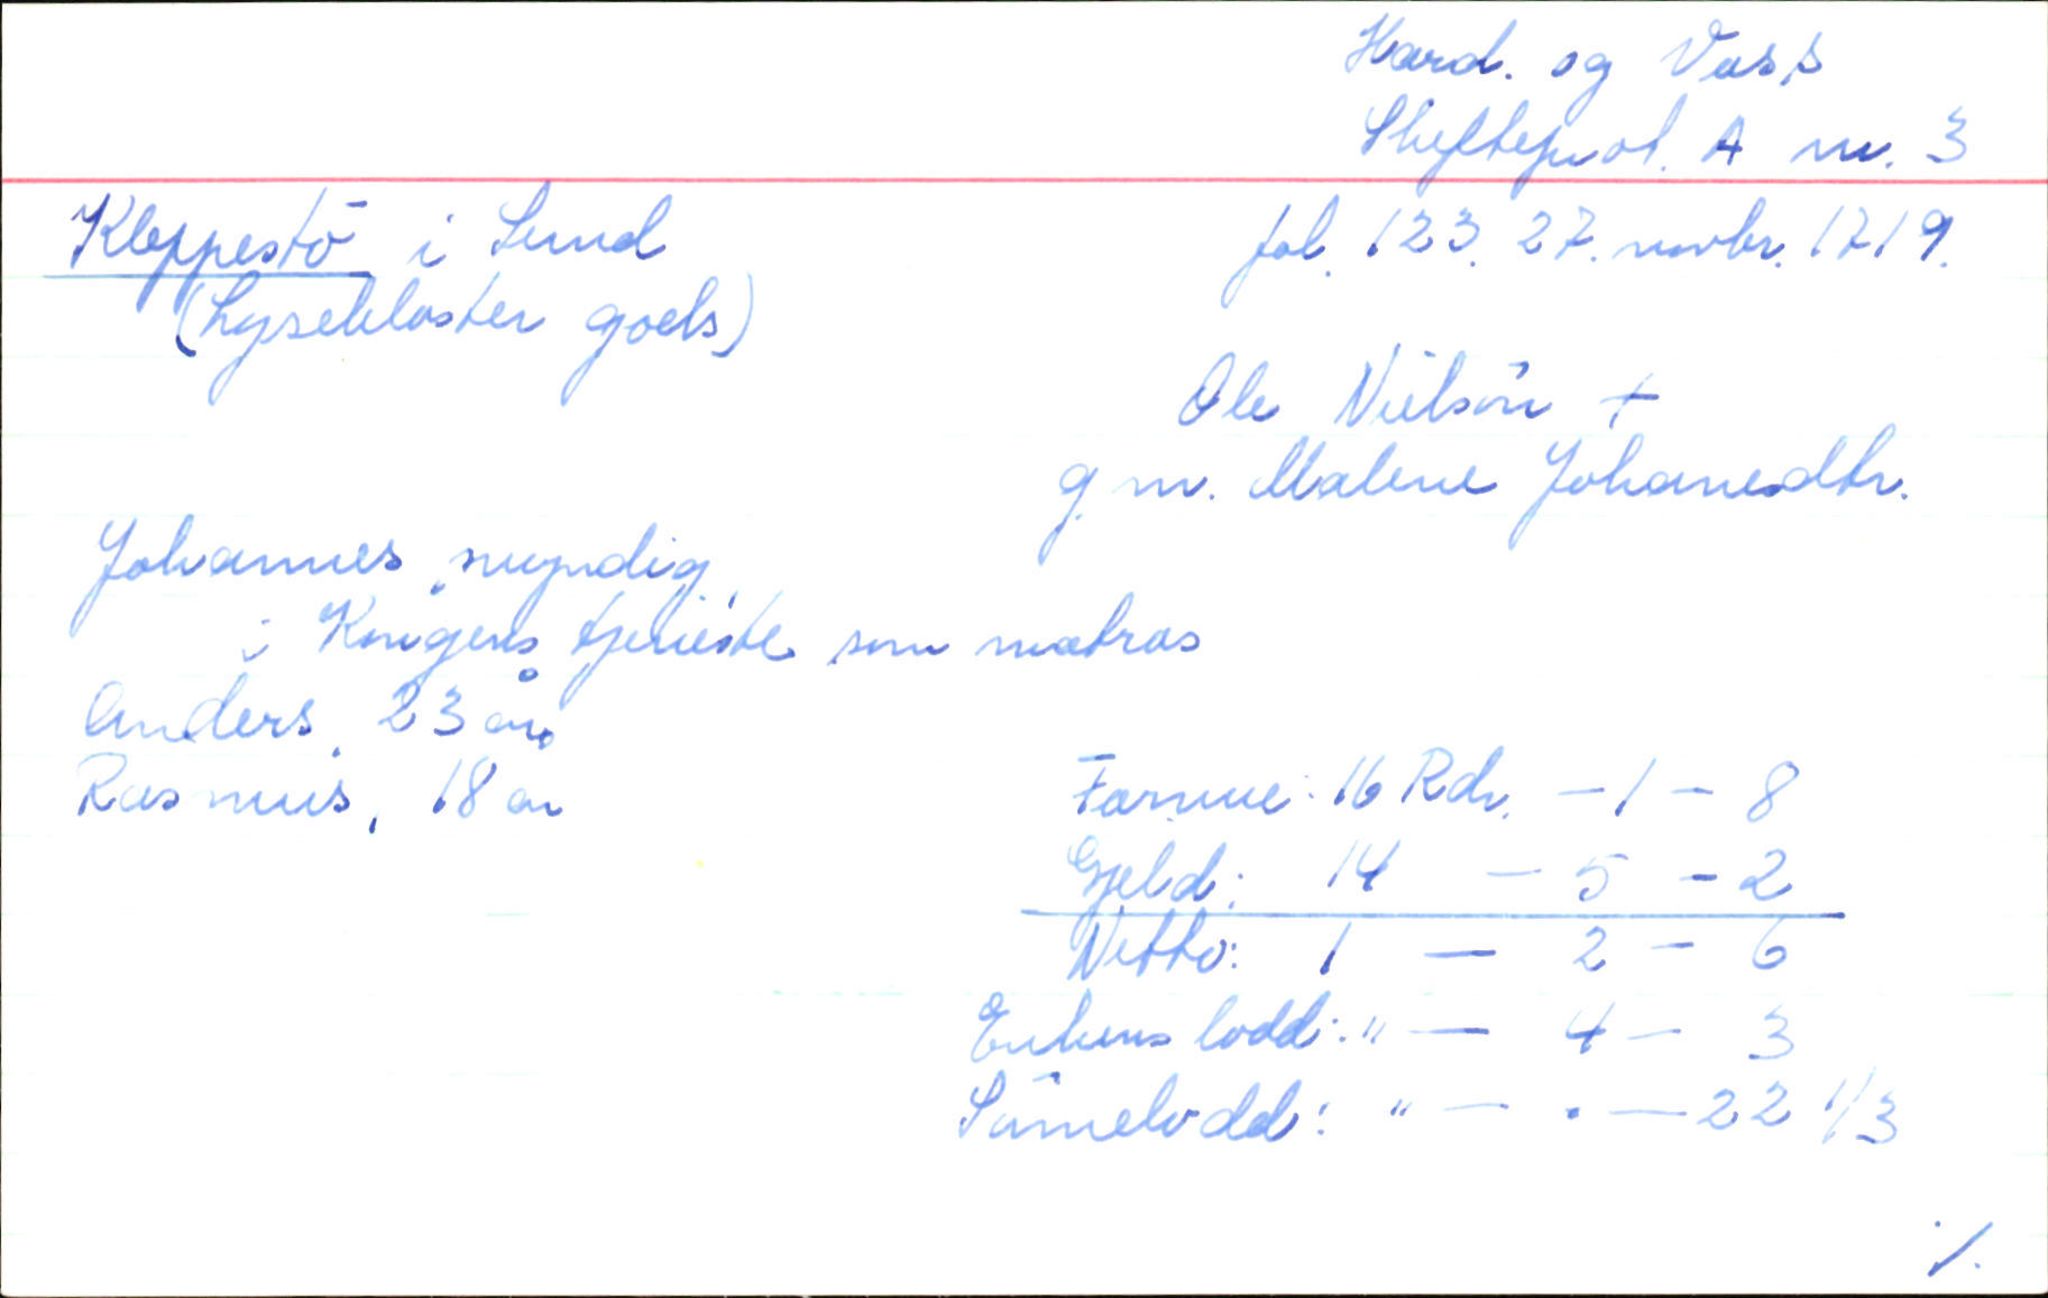 Hard. og Voss
Skifteprot. A nr. 3
Kleppestö i Sund
fol. 123. 27. novbr. 1719.
(Lysekloster gods)
Ole Nielsön +
g. m. Malene Johanesdtr.
Johannes, myndig,
i Kongens tjeneste som matros
Anders, 23 år,
Rasmus, 18 år
Formue: 16 Rdr. - 1 - 8
Gjeld: 14 - 5 - 2
Netto: 1 - 2 - 6
Enkens lodd: " - 4 - 3
Sönnelodd: " - . - 22 1/3
./.